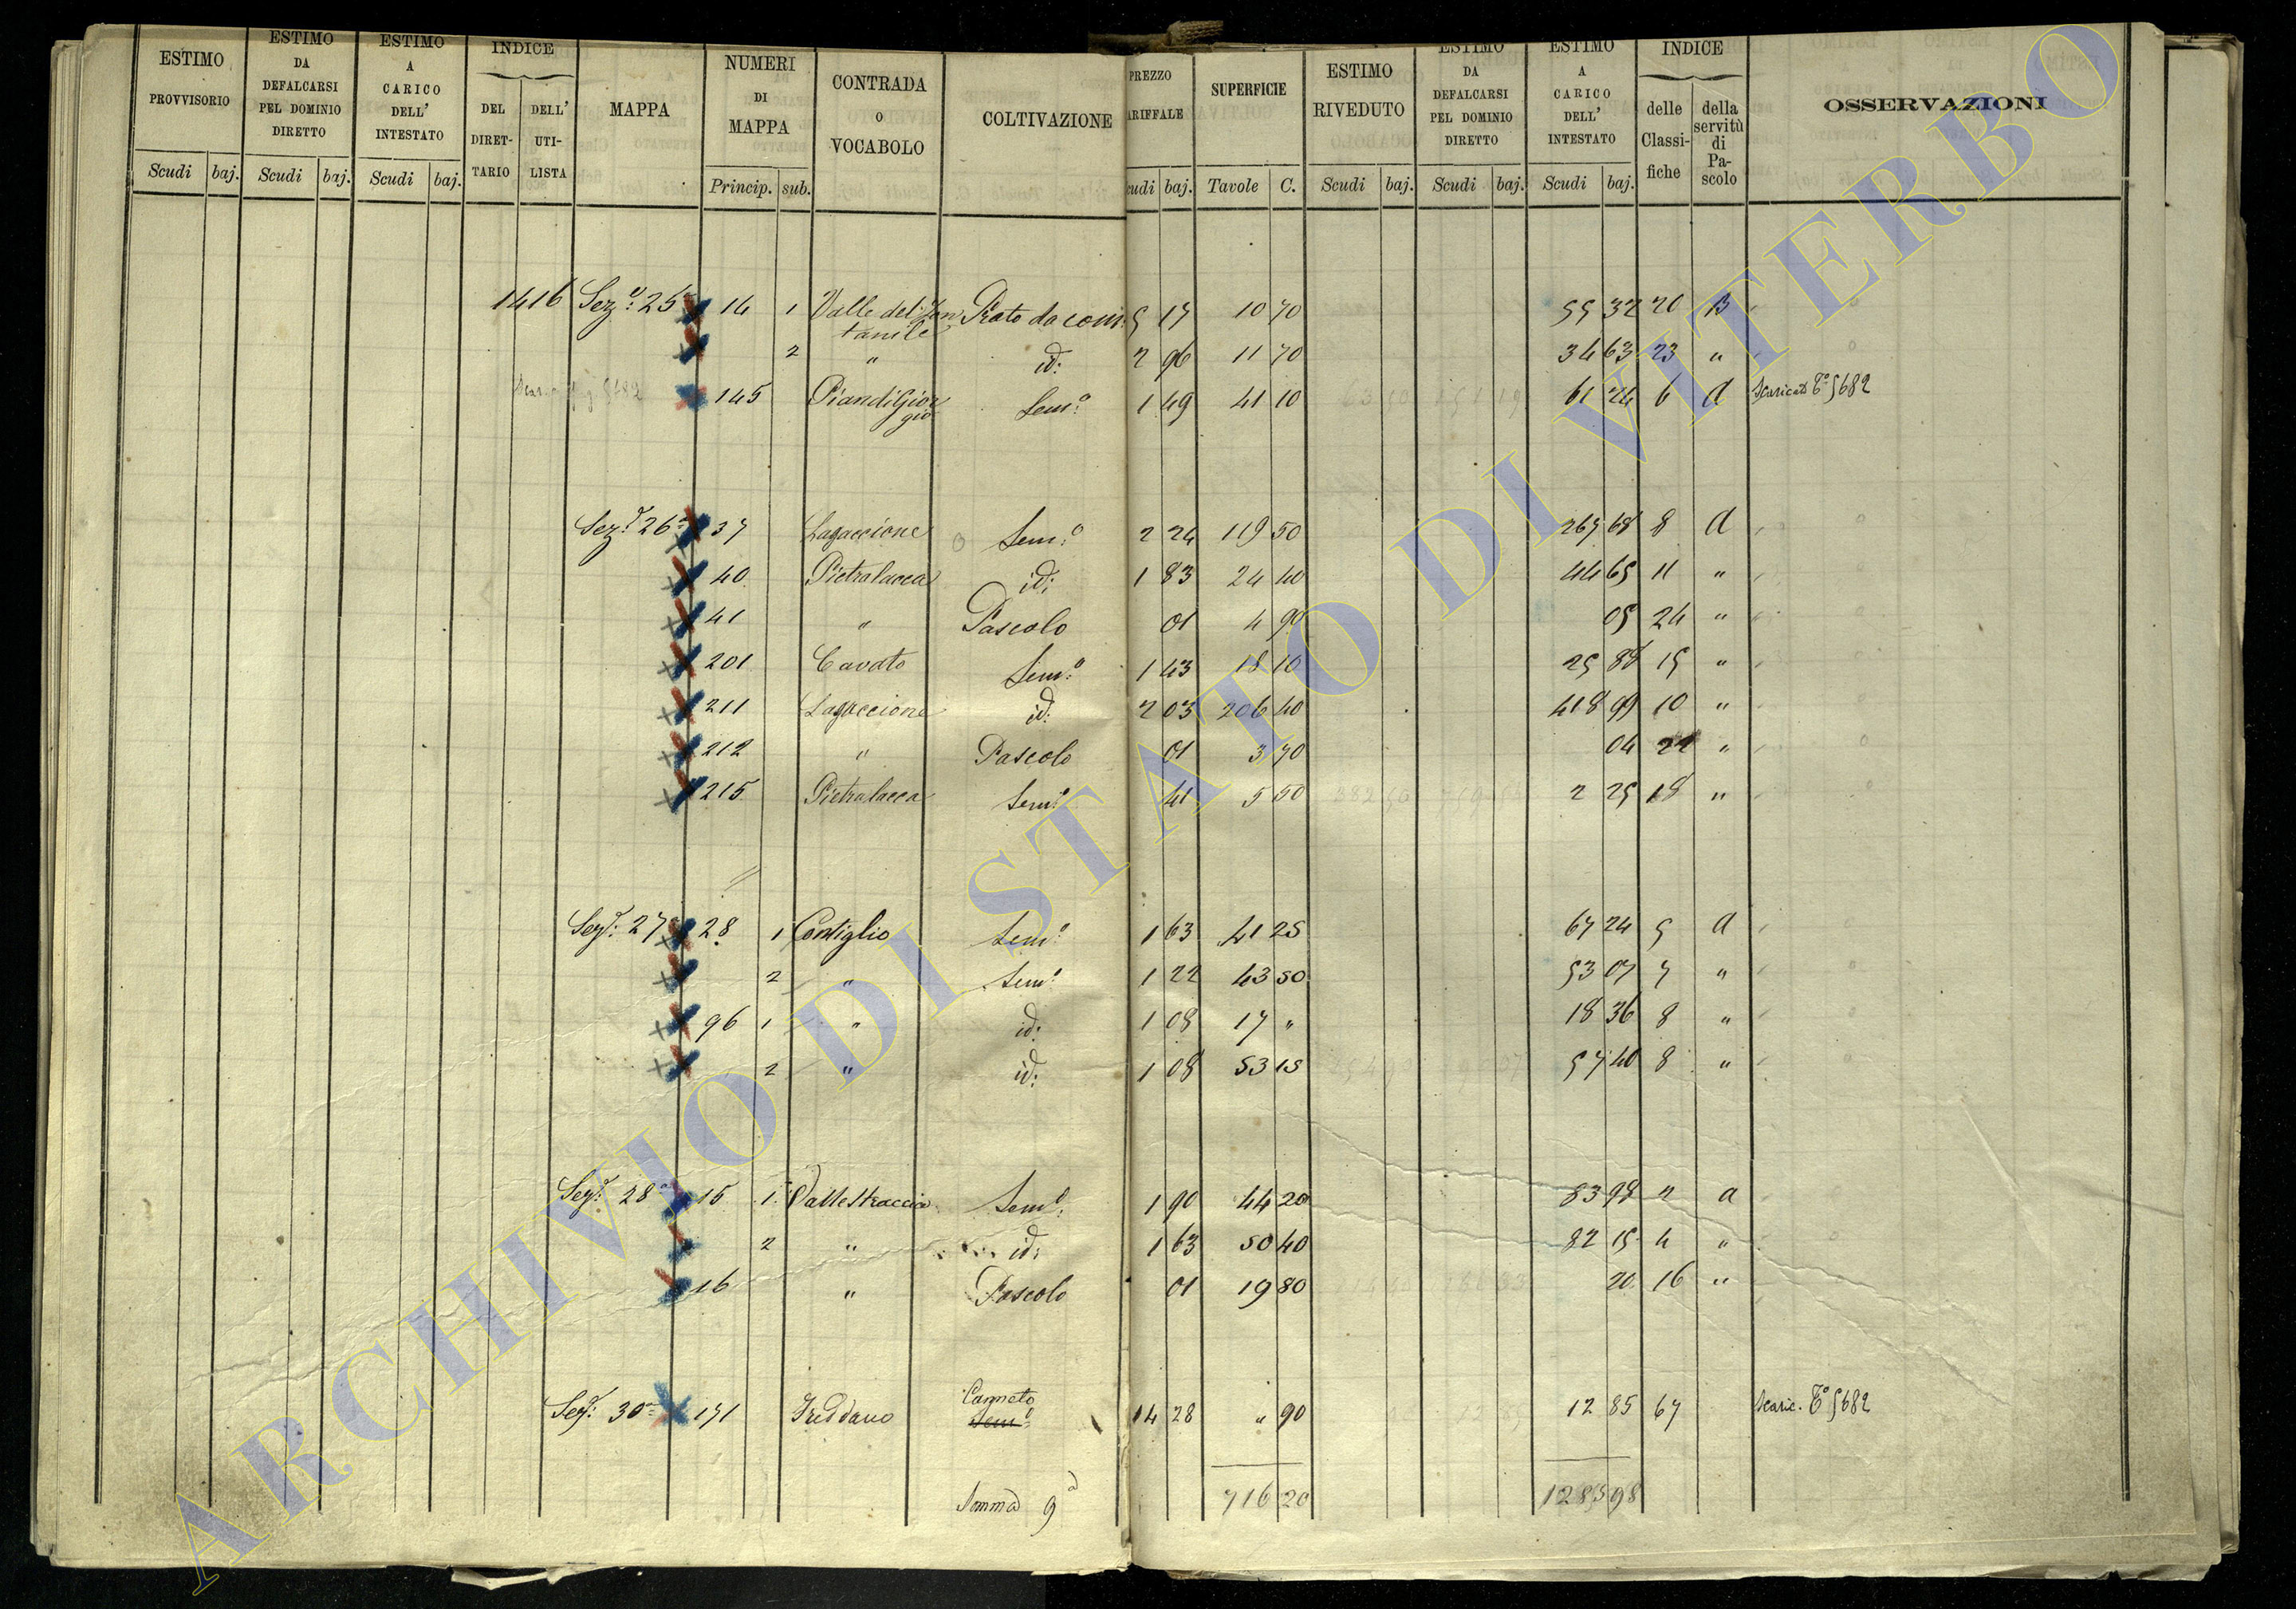 ESTIMO PROVVISORIO Scudi baj.
ESTIMO DA DEFALCARSI PEL DOMINIO DIRETTO Scudi baj.
ESTIMO A CARICO DELL' INTESTATO Scudi baj.
INDICE DEL DIRET-TARIO DELL' UTI-LISTA
MAPPA
NUMERI DI MAPPA Princip. sub.
CONTRADA O VOCABOLO
COLTIVAZIONE
PREZZO ARIFFALE cudi baj.
SUPERFICIE Tavole C.
ESTIMO RIVEDUTO Scudi baj.
ESTIMO DA DEFALCARSI PEL DOMINIO DIRETTO Scudi baj.
ESTIMO A CARICO DELL' INTESTATO Scudi baj.
INDICE delle Classi-fiche della servitù di Pa-scolo
OSSERVAZIONI
1416 Sez.e 25a 14 1 Valle del Fon Prato da com: 5 17 10 70 55 32 20 B
tanile
2 " id: 2 96 11 70 34 63 23 "
145 Piandigior Sem:o 1 49 41 10 61 24 6 a Scaricato To 5682
gio
Sez.e 26a 37 Lagaccione Sem:o 2 24 119 50 267 68 8 a
40 Pietralacca id: 1 83 24 40 44 65 11 "
41 " Pascolo 01 4 90 05 24 "
201 Cavato Sem:o 1 43 18 10 25 88 15 "
211 Lagaccione id: 2 03 206 40 418 99 10 "
212 " Pascolo 01 3 70 04 22 "
215 Pietralacca Sem:o 41 5 50 2 25 18 "
Sez.e 27a 28 1 Contiglio Sem:o 1 63 41 25 67 24 5 a
2 " Sem:o 1 22 43 50 53 07 7 "
96 1 " id: 1 08 17 " 18 36 8 "
2 " id: 1 08 53 15 57 40 8 "
Sez.e 28a 15 1 Vallestraccia Sem:o 1 90 44 20 83 98 2 a
2 " id: 1 63 50 40 82 15 4 "
16 " Pascolo 01 19 80 20 16 "
Canneto
Sez.e 30a 171 Freddano Sem:o 14 28 " 90 12 85 67 Scaric. To 5682
Somma 9a 716 20 1285 98
ARCHIVIO DI STATO DI VITERBO